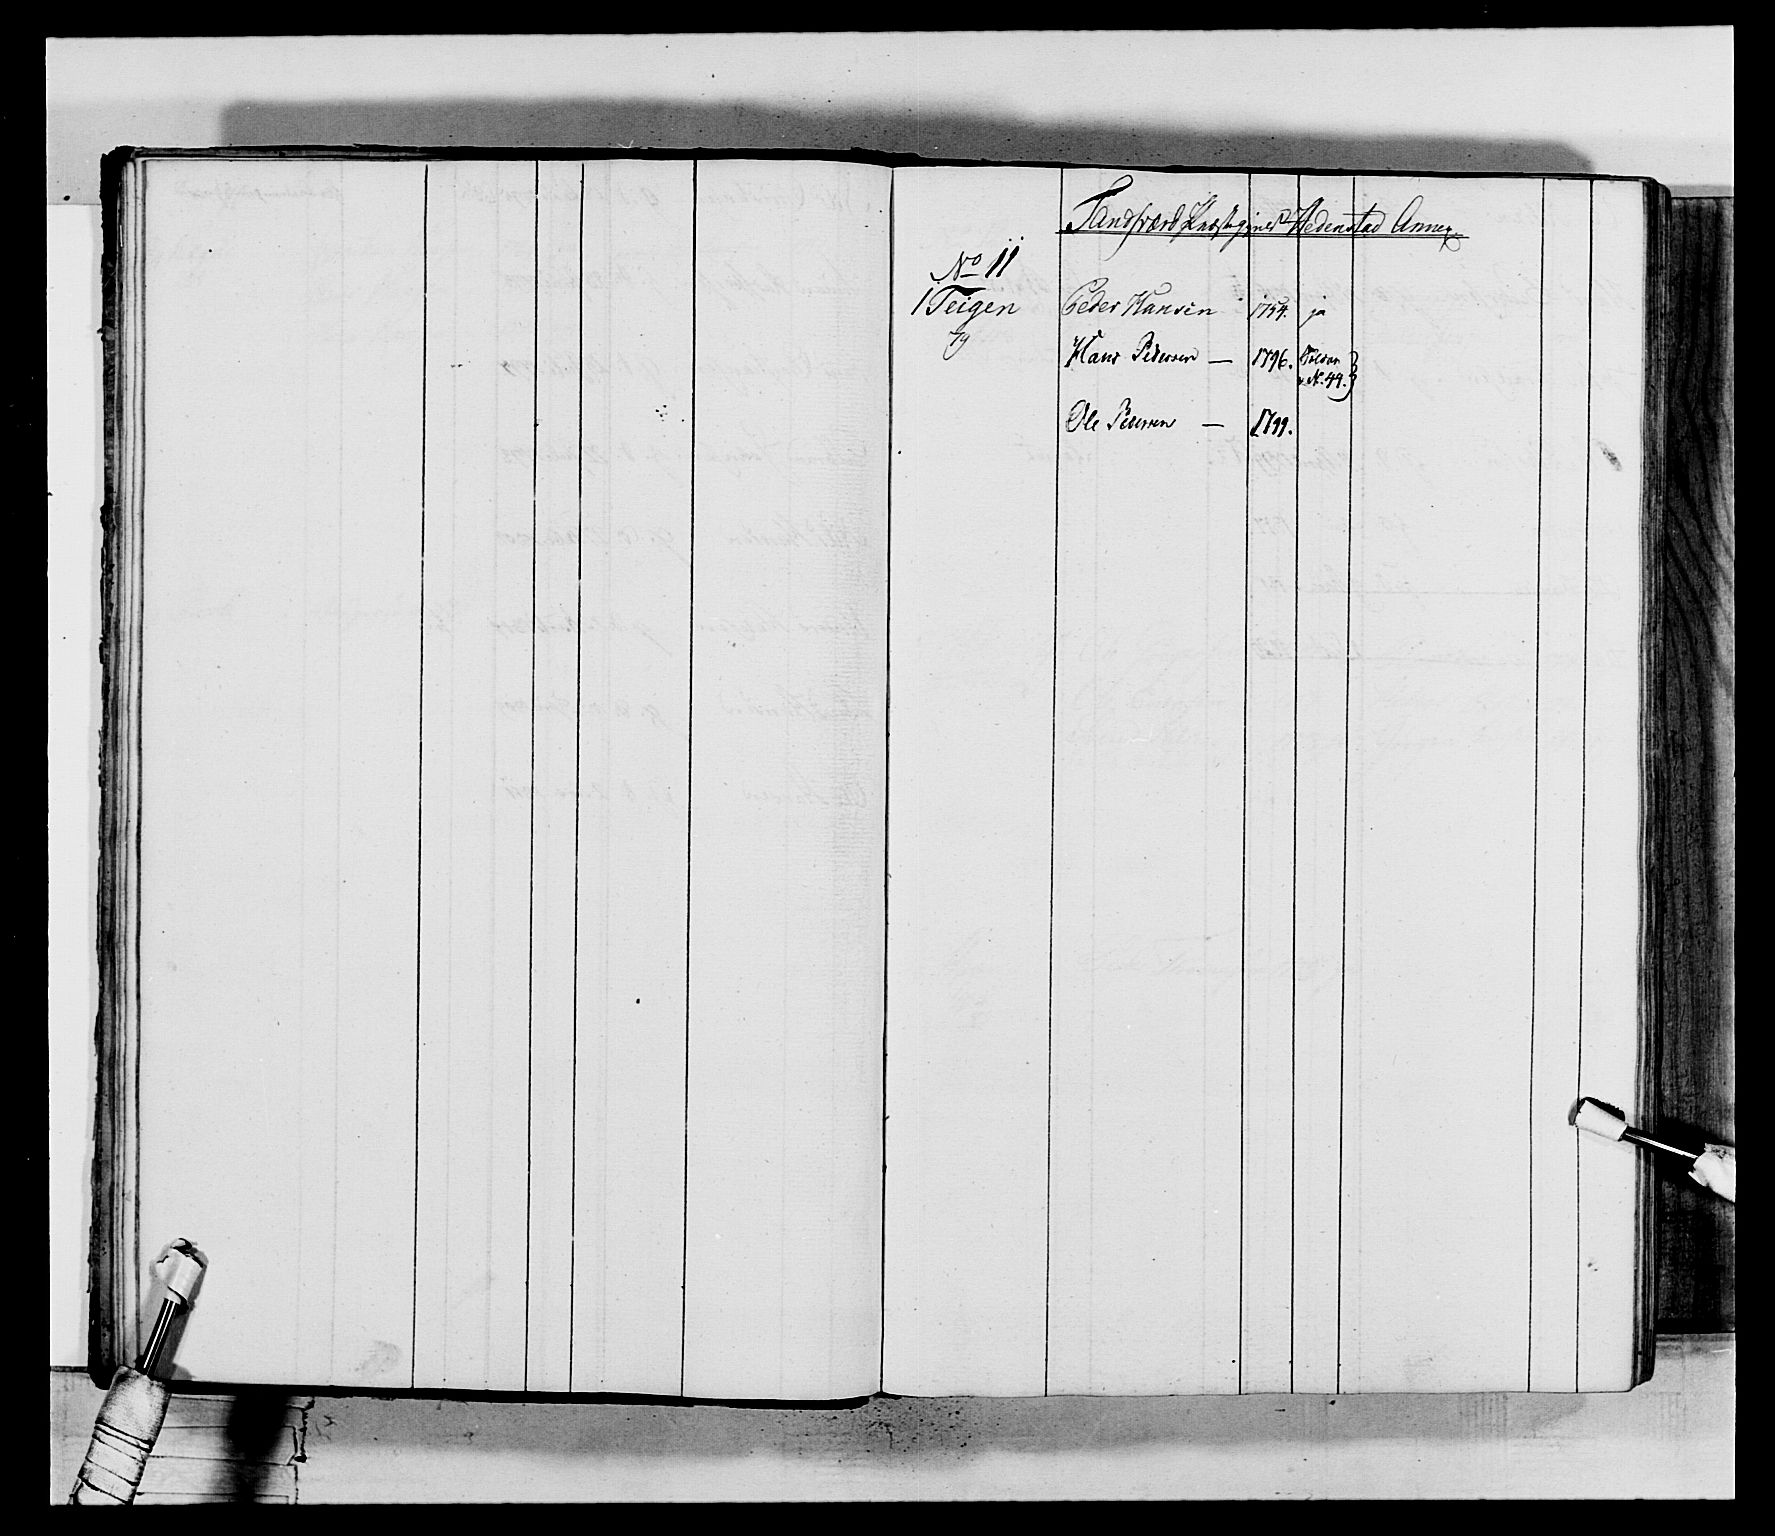 Sandsværd Præstegjeld Hedenstad Annex
No 11
1 Teigen Peder Hansen 1754. ja
Hans Pedersen — 1796. No. 44.
Ole Pedersen — 1799.